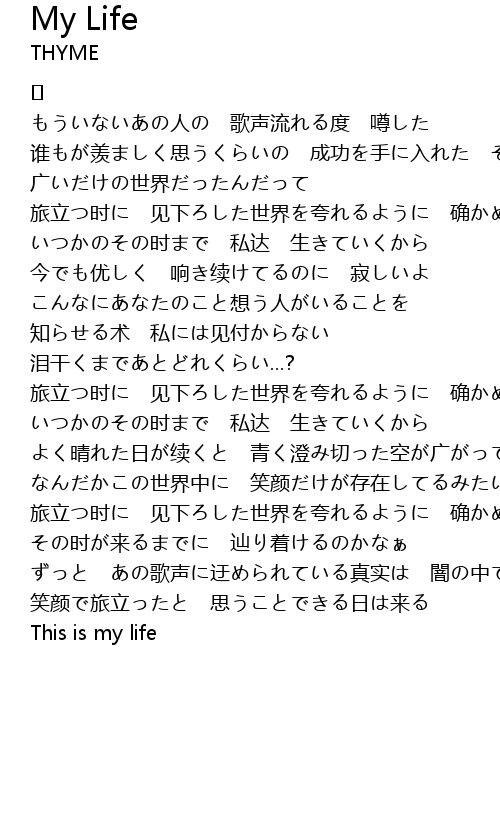 My Life
THYME
[]
もういないあの人の　歌声流れる度　噂した
谁もが羨ましく思うくらいの　成功を手に入れた　そ
广いだけの世界だったんだって
旅立つ时に　见下ろした世界を夸れるように　确かめ
いつかのその时まで　私达　生きていくから
今でも优しく　响き续けてるのに　寂しいよ
こんなにあなたのこと想う人がいることを
知らせる术　私には见付からない
泪干くまであとどれくらい...?
旅立つ时に　见下ろした世界を夸れるように　确かめ
いつかのその时まで　私达　生きていくから
よく晴れた日が续くと　青く澄み切った空が广がって
なんだかこの世界中に　笑颜だけが存在してるみたい
旅立つ时に　见下ろした世界を夸れるように　确かめ
その时が来るまでに　辿り着けるのかなぁ
ずっと　あの歌声に迂められている真实は　闇の中で
笑颜で旅立ったと　思うことできる日は来る
This is my life